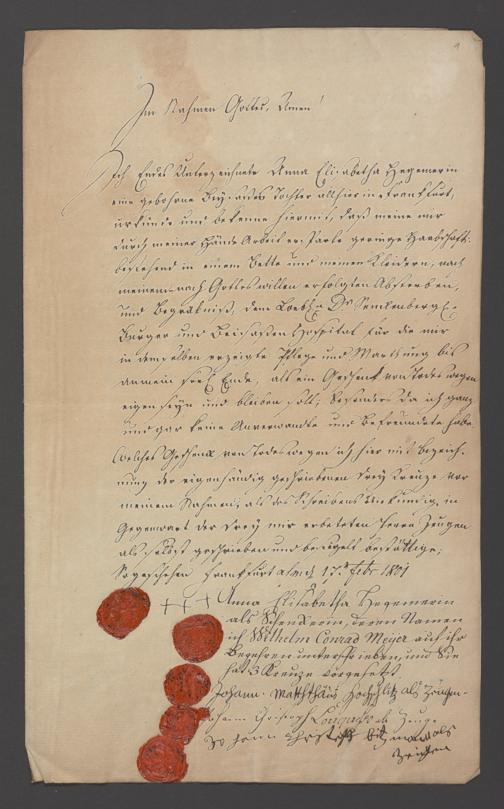 1
Im Nahmen Gottes, Amen!
Ich Endes Unterzeichnete Anna Elisabetha Hegemerin
eine gebohrne Beysaßes Tochter allhier in Franckfurt,
urkunde und bekenne hiermit, daß meine mir
durch meiner Hände Arbeit ersparte geringe Haabschaft,
bestehend in einem Bette und meinen Kleidern, nach
meinem nach Gottes willen erfolgten Absterben,
und Begräbniß, dem Löbl. Dr Senckenberg.
Burger und Beisaßen Hospital für die mir
in demselben erzeigte Pflege und Warthung bis
an mein Ende, als ein Geschenk von Todes wegen
eigen seyn und bleiben soll; besonders da ich ganz
und gar keine Anverwandte und Befreundete habe.
Welches Geschenk von Todes wegen ich hier mit Bezeich-
nung der eigenhändig geschriebenen drey Kreuze vor
meinem Nahmen, als des Schreibens Unkundig, in
Gegenwart der drey mir erbetteten Herrn Zeugen
als selbst geschrieben und besiegelt bestättige;
So geschehen Franckfurt a/m d 17. Febr 1801
+++ Anna Elisabetha Hegemerin
als Schenkerin, deren Namen
ich Wilhelm Conrad Meyer auf ihr
Begehren unterschrieben, und Sie
hat 3 Kreuze vorgesetzt.
Johann Matthäus als Zeuge
Johann Christoph als Zeuge
Johann als
Zeugen